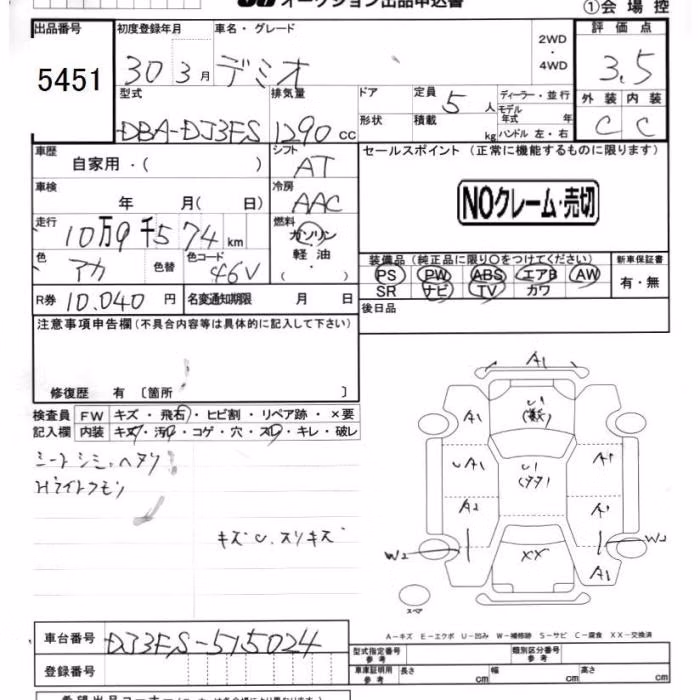 オークション出品申込書
①会場控
出品番号 初度登録年月 車名・グレード 2WD・4WD 評価点
5451 30 3月 デミオ 3.5
型式 排気量 ドア 定員 5人 ディーラー・並行 外装 内装
モデル年式 年
DBA-DJ3FS 1290cc 形状 積載 kg ハンドル 左・右 C C
車歴 自家用・( ) シフト AT セールスポイント (正常に機能するものに限ります)
車検 年 月( 日) 冷房 AAC NOクレーム・売切
走行 10万9千574km 燃料 ガソリン・軽油・( )
色 アカ 色替 色コード 46V
装備品(純正品に限り○をつけてください) 新車保証書
PS PW ABS エアB AW 有・無
SR ナビ TV カワ
R券 10.040円 名変通知期限 月 日 後日品
注意事項申告欄(不具合内容等は具体的に記入して下さい)
修復歴 有〔箇所 〕
検査員記入欄 FW キズ・飛石・ヒビ割・リペア跡・×要
内装 キズ・汚・コゲ・穴・スレ・キレ・破レ
シートシミ、ヘタリ
キズU、スリキズ
A1
A1
A1
A1
A2
A1
W2
XX
W2
A1
スペア
A-キズ E-エクボ U-凹み W-補修跡 S-サビ C-腐食 XX-交換済
車台番号 DJ3FS-515024
登録番号
型式指定番号 参考 類別区分番号 参考
車庫証明用 参考 長さ cm 幅 cm 高さ cm